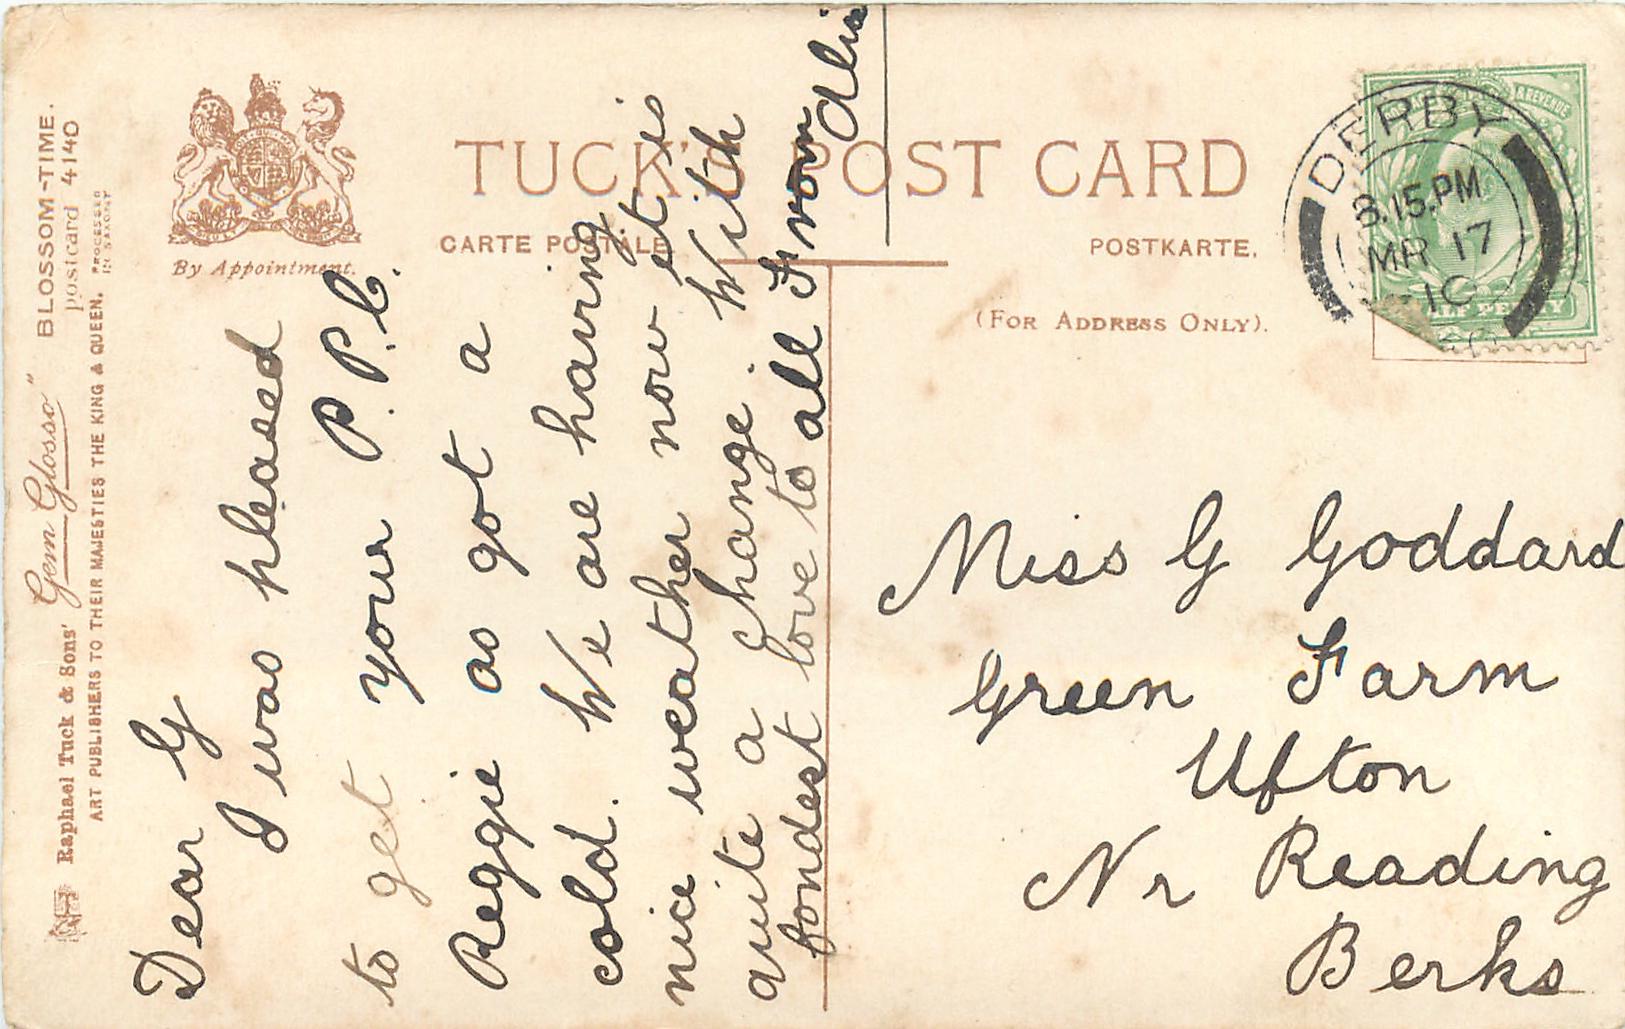 BLOSSOM-TIME.
postcard 4140
PROCESSED
IN SAXONY
"Gem Glosso"
Raphael Tuck & Sons'
ART PUBLISHERS TO THEIR MAJESTIES THE KING & QUEEN.
By Appointment.
TUCK'S POST CARD
CARTE POSTALE
POSTKARTE.
(FOR ADDRESS ONLY).
DERBY
8.15.PM
MR 17
10
& REVENUE
HALF PENNY
Dear G
I was pleased
to get your P.P.C.
Reggie as got a
cold. We are having
nice weather now it is
quite a change. With
fondest love to all From
Miss G Goddard
Green Farm
Ufton
Nr Reading
Berks